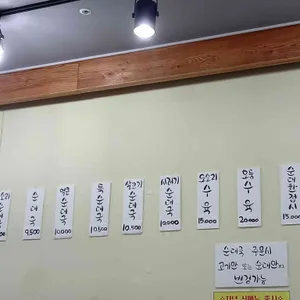 순대국
9,500
얼큰순대국
10,000
특순대국
10,500
살코기순대국
10,500
시래기순대국
10,000
모소리수육
15,000
모듬수육
20,000
순대한접시
15,000
순대국 주문시
고기만 또는 순대만으로
변경가능